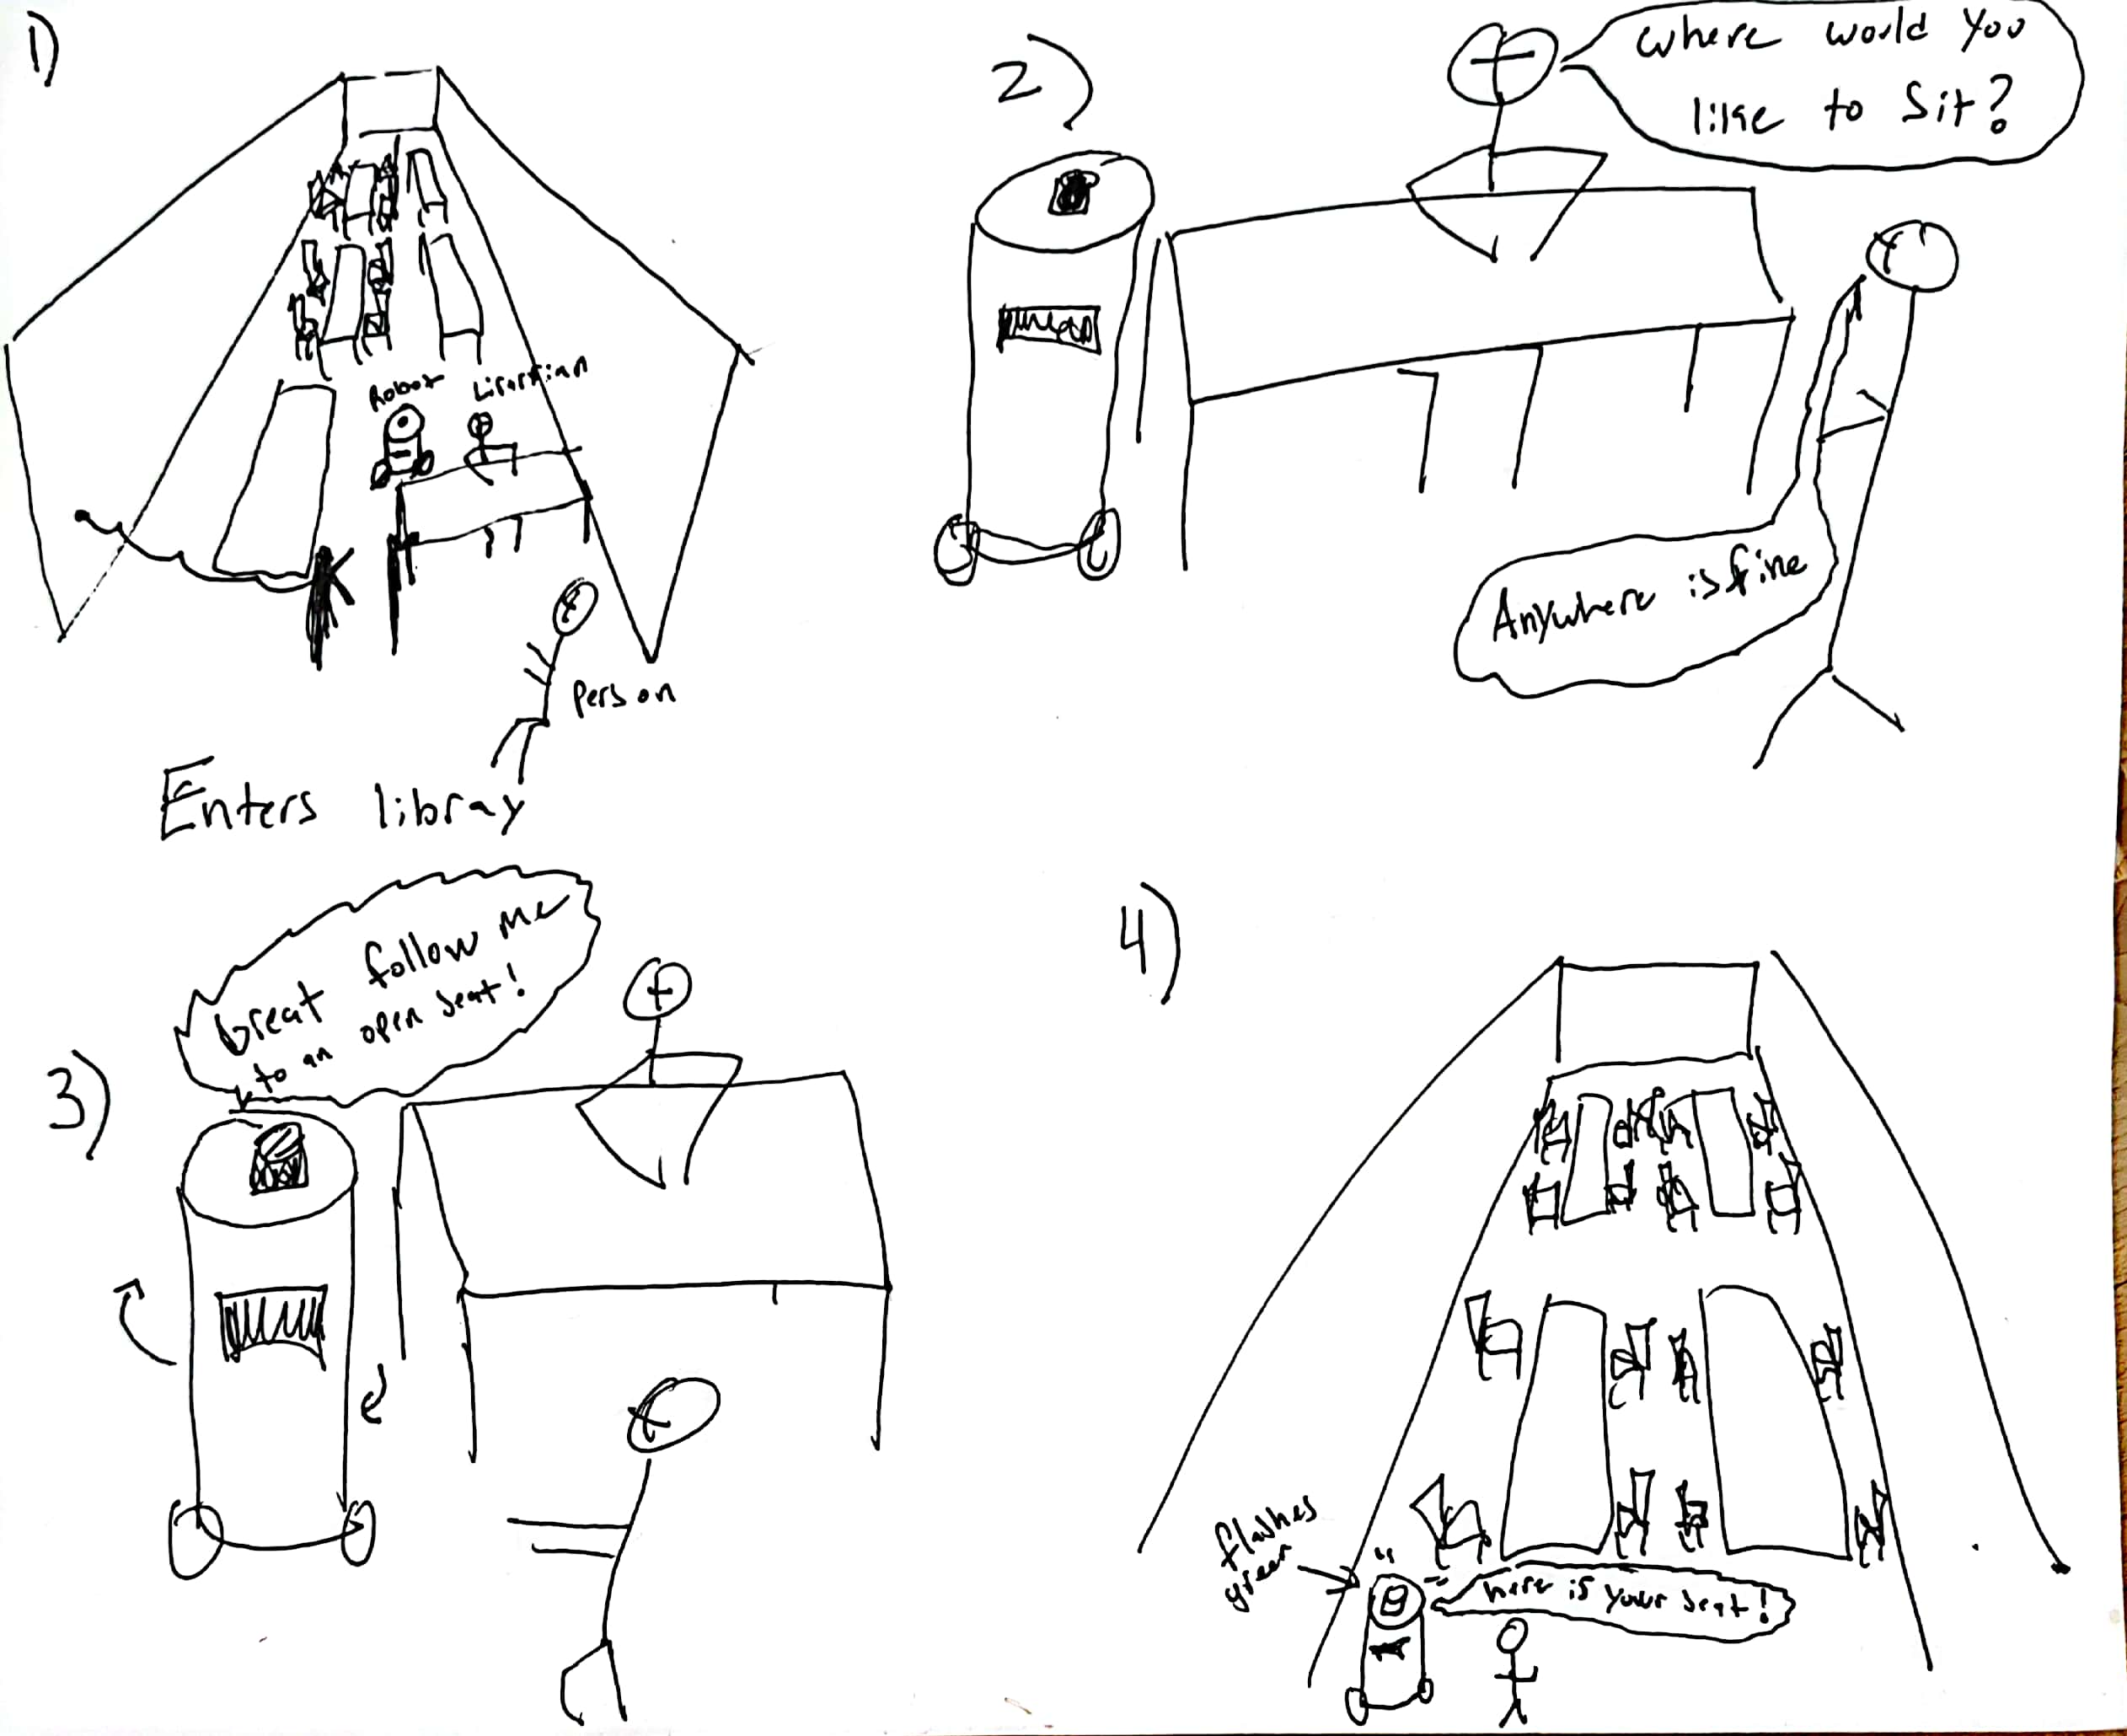 1)
Robot Librarian
Person
Enters library
2)
Where would you
like to Sit?
Anywhere is fine
3)
Great follow me
to an open seat!
4)
flashes
green
here is your seat!